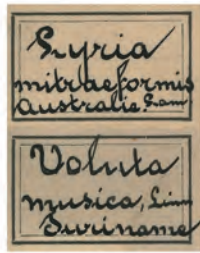 Lyria
mitraeformis
Australie. Lam
Voluta
musica, Linn
Suriname